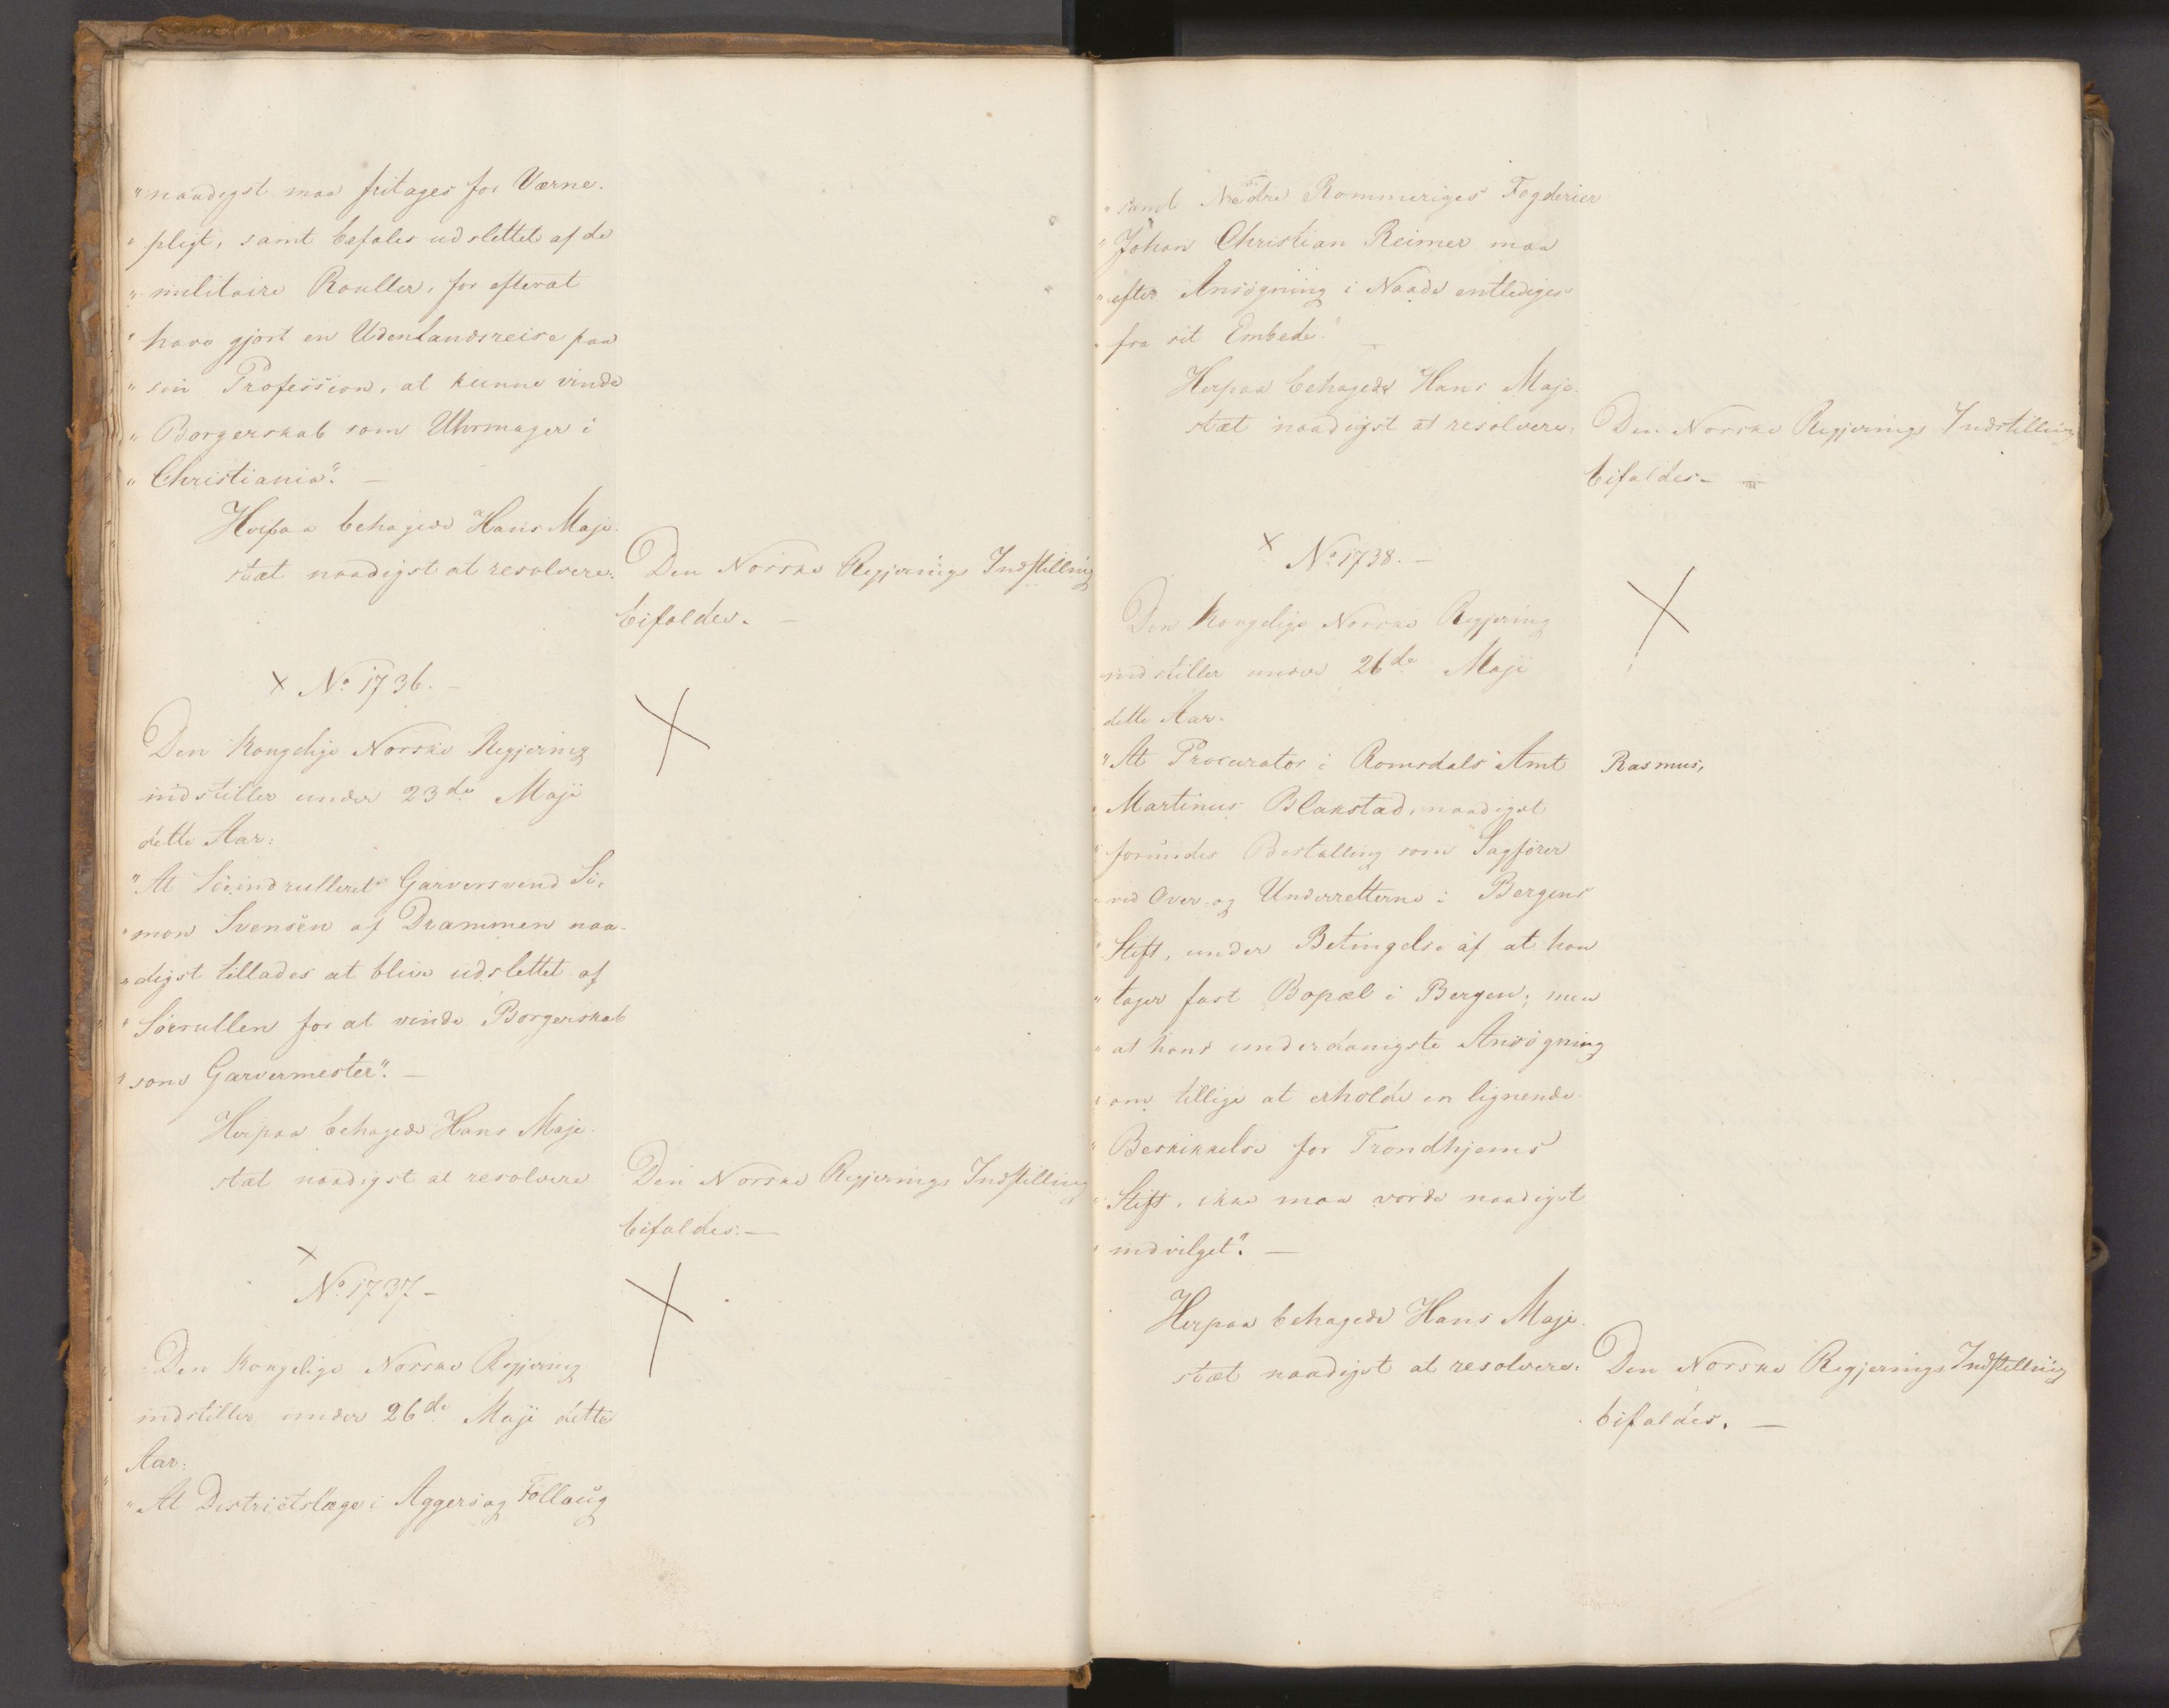 "naadigst maa fritages for Værne-
"pligt, samt befales udslettet af de
"militaire Rouller, for efterat
"have gjort en Udenlandsreise paa
"sin Profession, at kunne vinde
"Borgerskab som Uhrmager i
"Christiania". —
Herpaa behagede Hans Maje-
stæt naadigst at resolvere: Den Norske Regjerings Indstilling
bifaldes. —
× No 1736. —
Den Kongelige Norske Regjering
indstiller under 23de Maji
dette Aar:
"At Søeindrulleret Garversvend Si-
"mon Svensen af Drammen naa-
"digst tillades at blive udslettet af
"Søerullen for at vinde Borgerskab
"som Garvermester". —
Herpaa behagede Hans Maje-
stæt naadigst at resolvere Den Norske Regjerings Indstilling
bifaldes. —
×
No 1737 —
Den Kongelige Norske Regjering
indstiller under 26de Maji dette
Aar:
"At Districtslæge i Aggers og Follaug
"samt Nedre Rommeriges Fogderier
"Johan Christian Reimer maa
"efter Ansøgning i Naade entlediges
"fra sit Embede." —
Herpaa behagede Hans Maje-
stæt naadigst at resolvere: Den Norske Regjerings Indstilling
bifaldes —
× No 1738. —
Den Kongelige Norske Regjering
indstiller under 26de Maji
dette Aar.
"At Procurator i Romsdals Amt Rasmus,
"Martinus Blakstad, naadigst
"forundes Bestalling som Sagfører
"ved Over- og Underretterne i Bergens
"Stift, under Betingelse af at han
"tager fast Bopæl i Bergen; men
"at hans underdanigste Ansøgning
"om tillige at erholde en lignende
"Beskikkelse for Trondhjems
"Stift, ikke maa vorde naadigst
"indvilget". —
Herpaa behagede Hans Maje-
stæt naadigst at resolvere: Den Norske Regjerings Indstilling
bifaldes. —